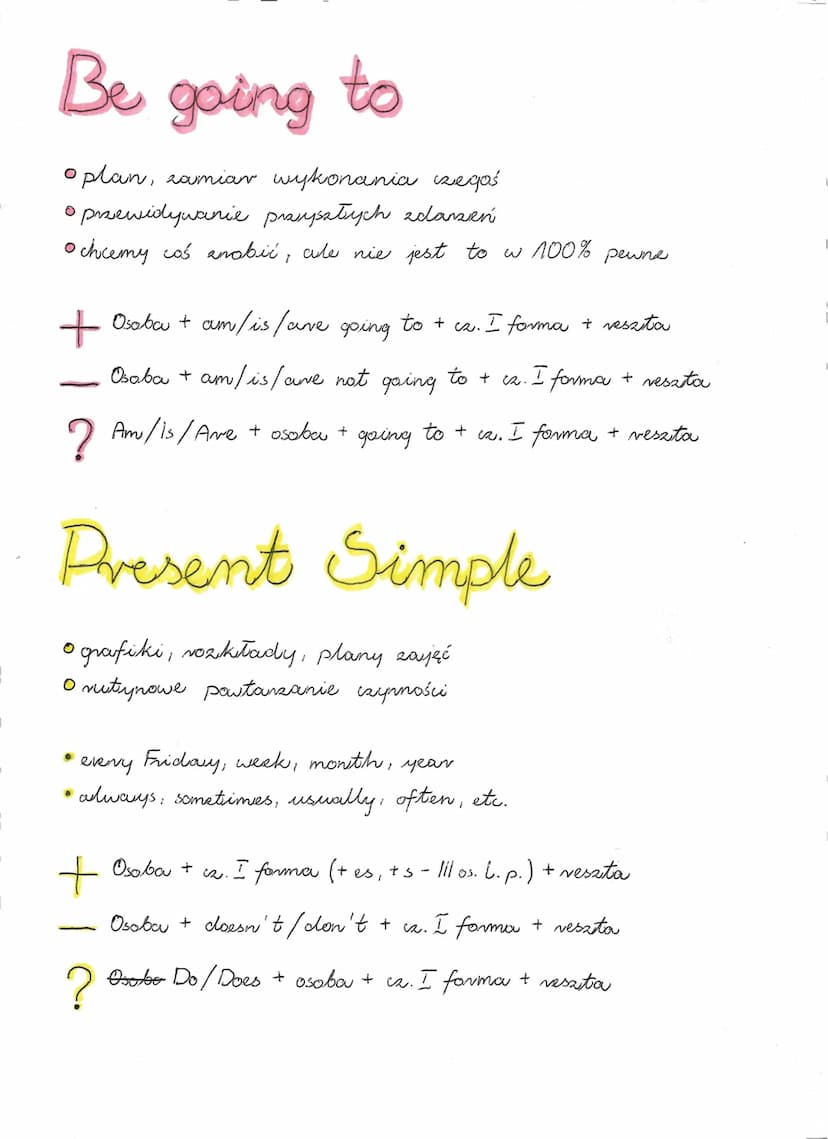 Be going to
plan, zamiar wykonania czegoś
przewidywanie przyszłych zdarzeń
chcemy coś zrobić, ale nie jest to w 100% pewne
+ Osoba + am/is/are going to + cz. I forma + reszta
– Osoba + am/is/are not going to + cz. I forma + reszta
? Am/Is/Are + osoba + going to + cz. I forma + reszta
Present Simple
grafiki, rozkłady, plany zajęć
rutynowe powtarzanie czynności
every Friday, week, month, year
always, sometimes, usually, often, etc.
+ Osoba + cz. I forma (+ es, + s – III os. l. p.) + reszta
– Osoba + doesn't/don't + cz. I forma + reszta
? Osoba Do/Does + osoba + cz. I forma + reszta